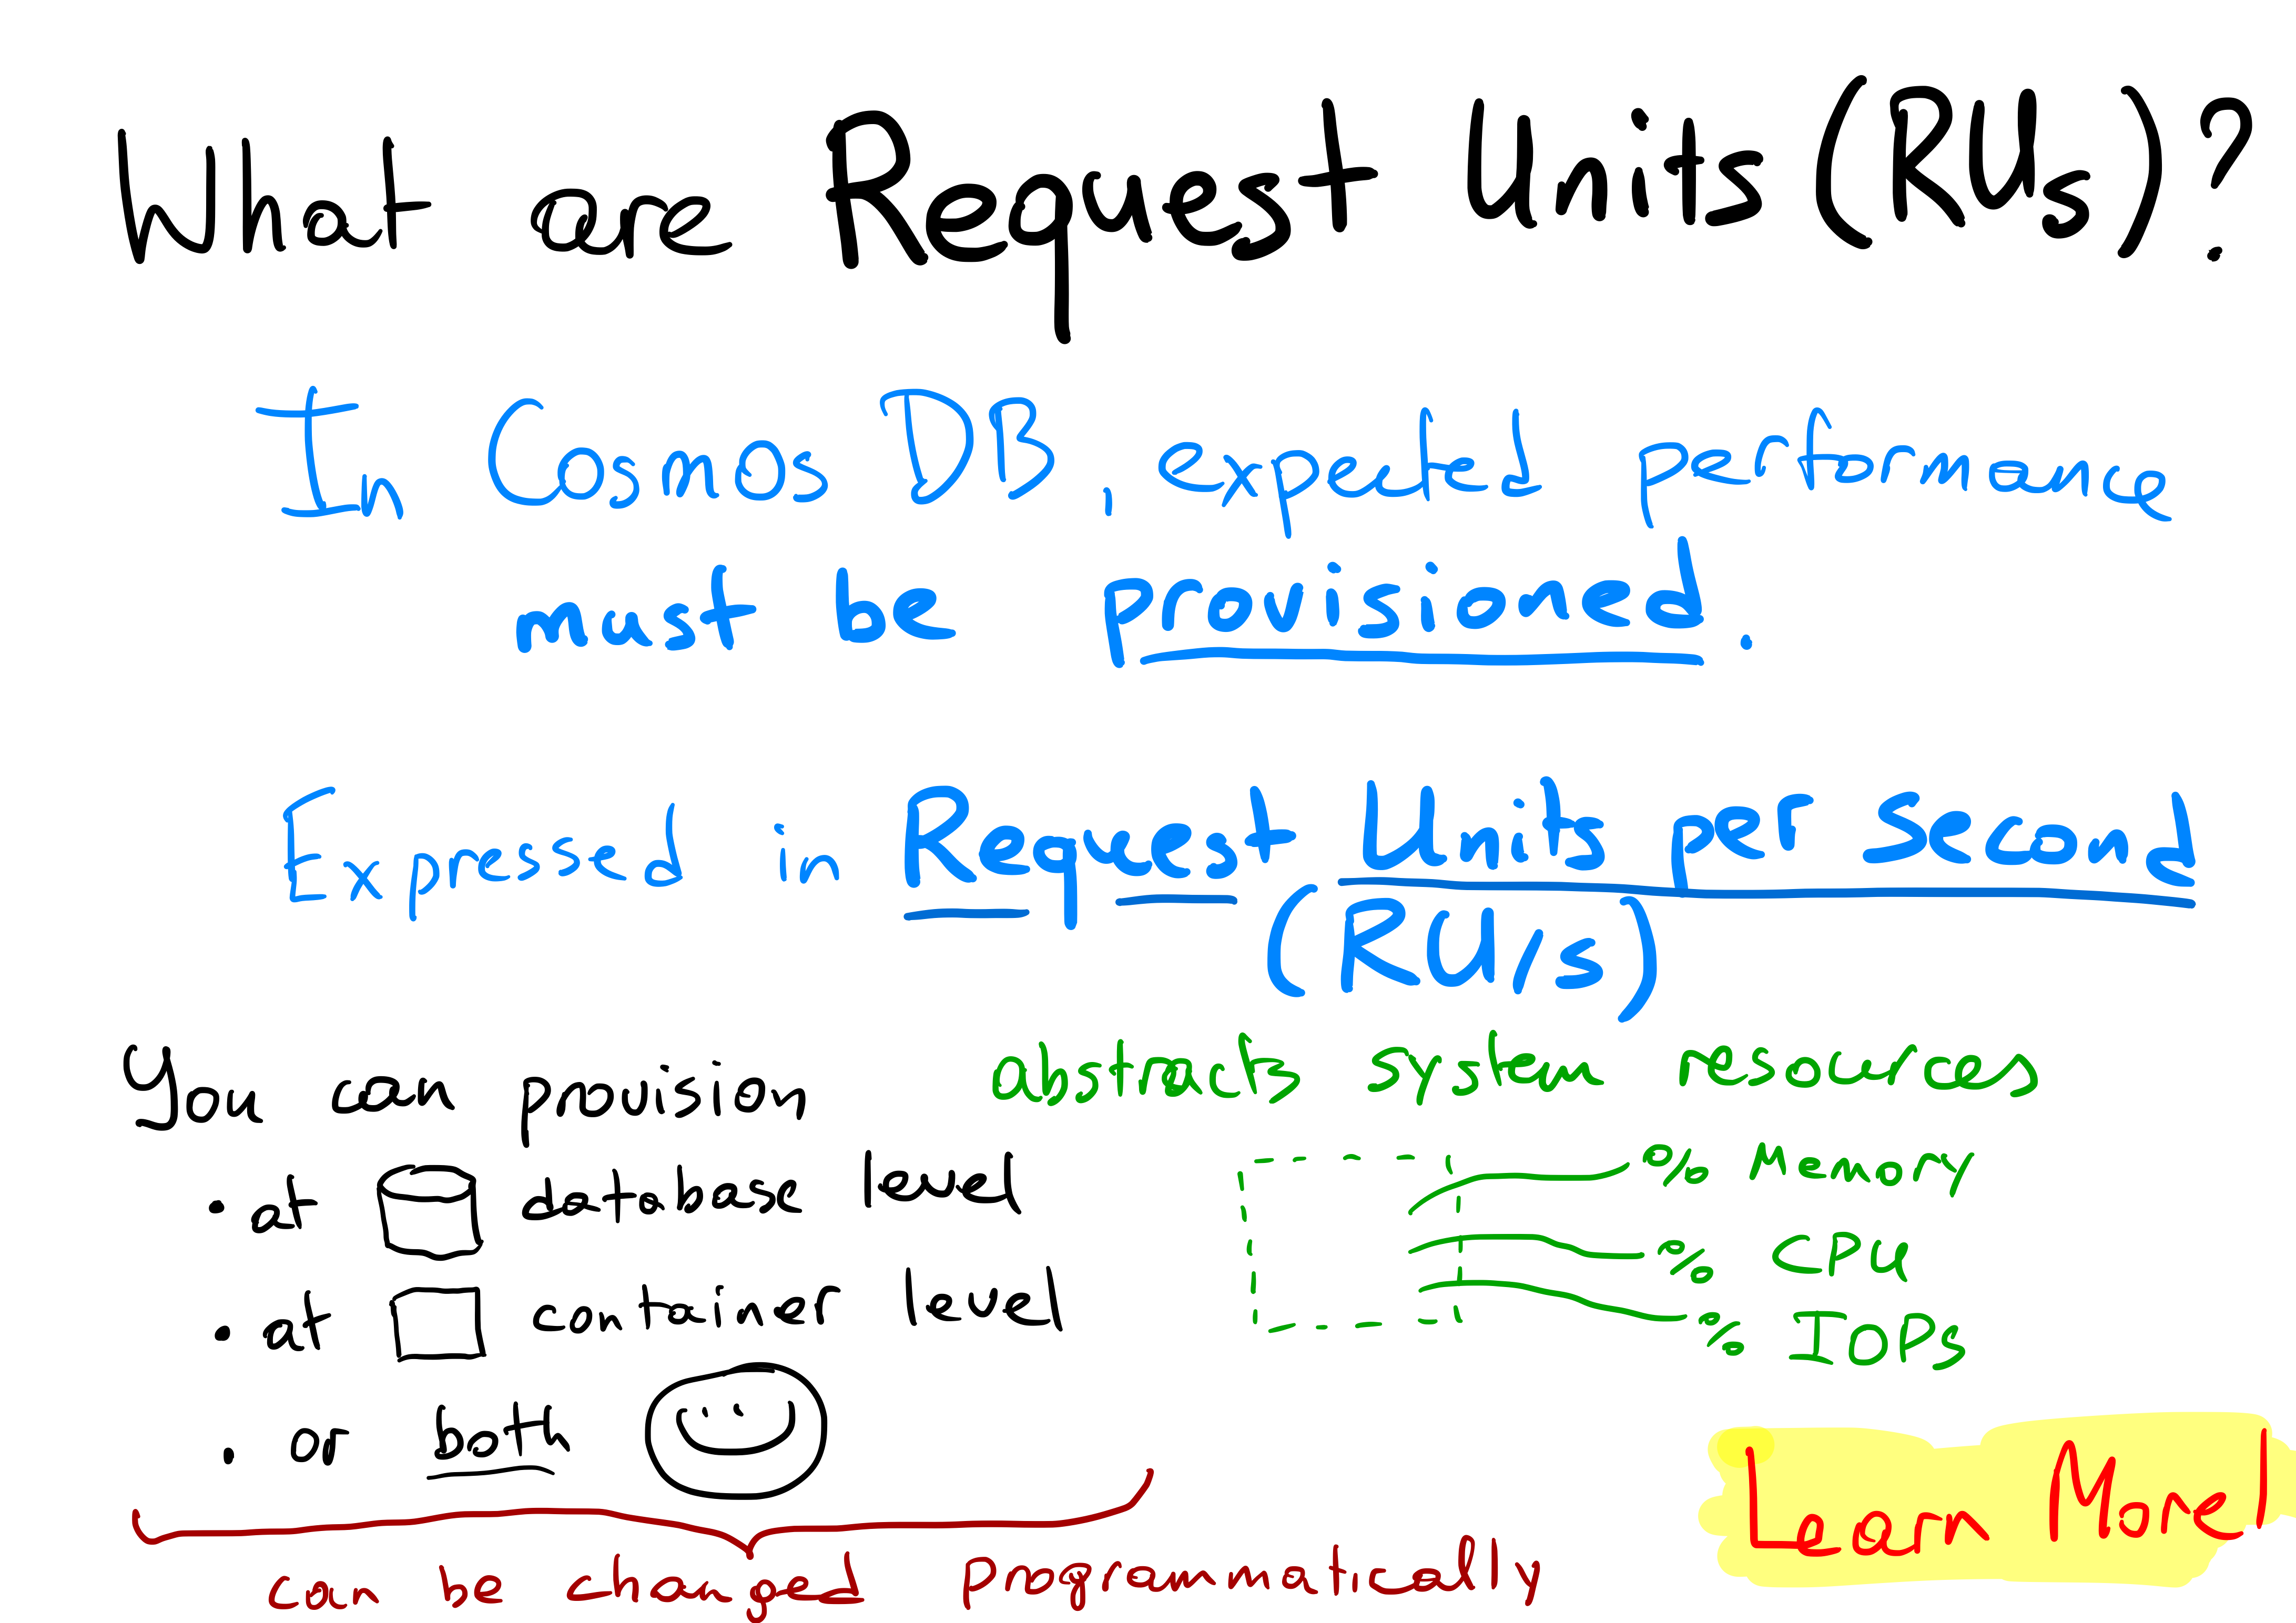 What are Request Units (RUs)?
In Cosmos DB, expected performance
must be provisioned.
Expressed in Request Units per second
(RU/s)
You can provision
• at database level
• at container level
• or both
can be changed programmatically
abstracts system resources
% Memory
% CPU
% IOPs
Learn More!